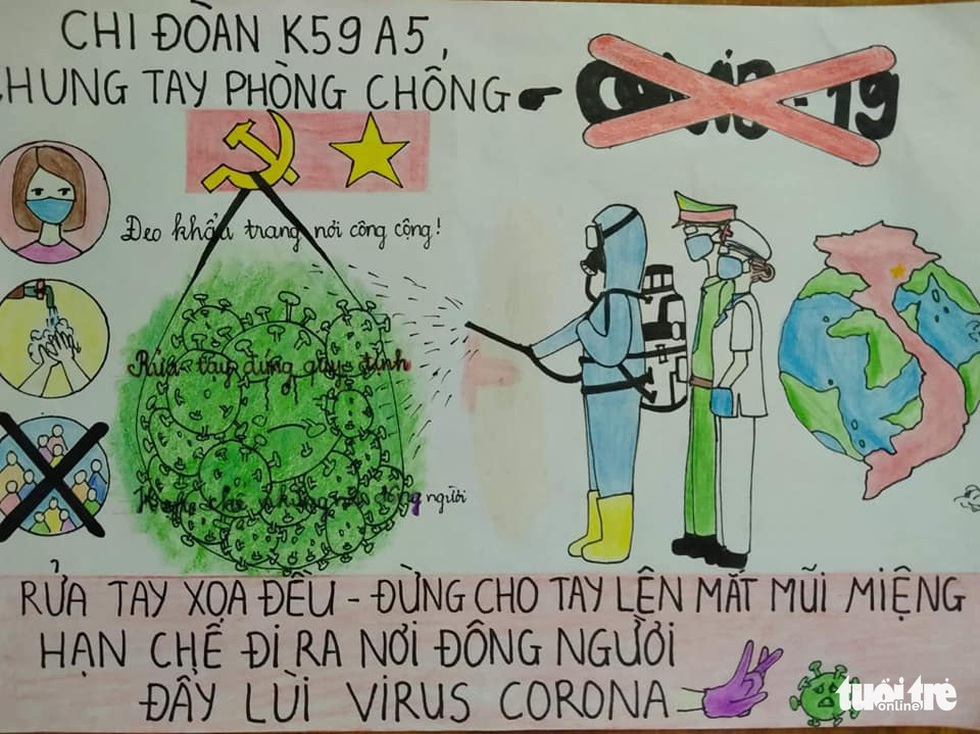 CHI ĐOÀN K59A5,
CHUNG TAY PHÒNG CHỐNG
COVID-19
Đeo khẩu trang nơi công cộng!
Rửa tay đúng quy định
Hạn chế những nơi đông người
RỬA TAY XOA ĐỀU - ĐỪNG CHO TAY LÊN MẮT MŨI MIỆNG
HẠN CHẾ ĐI RA NƠI ĐÔNG NGƯỜI
ĐẨY LÙI VIRUS CORONA
tuổi trẻ
online